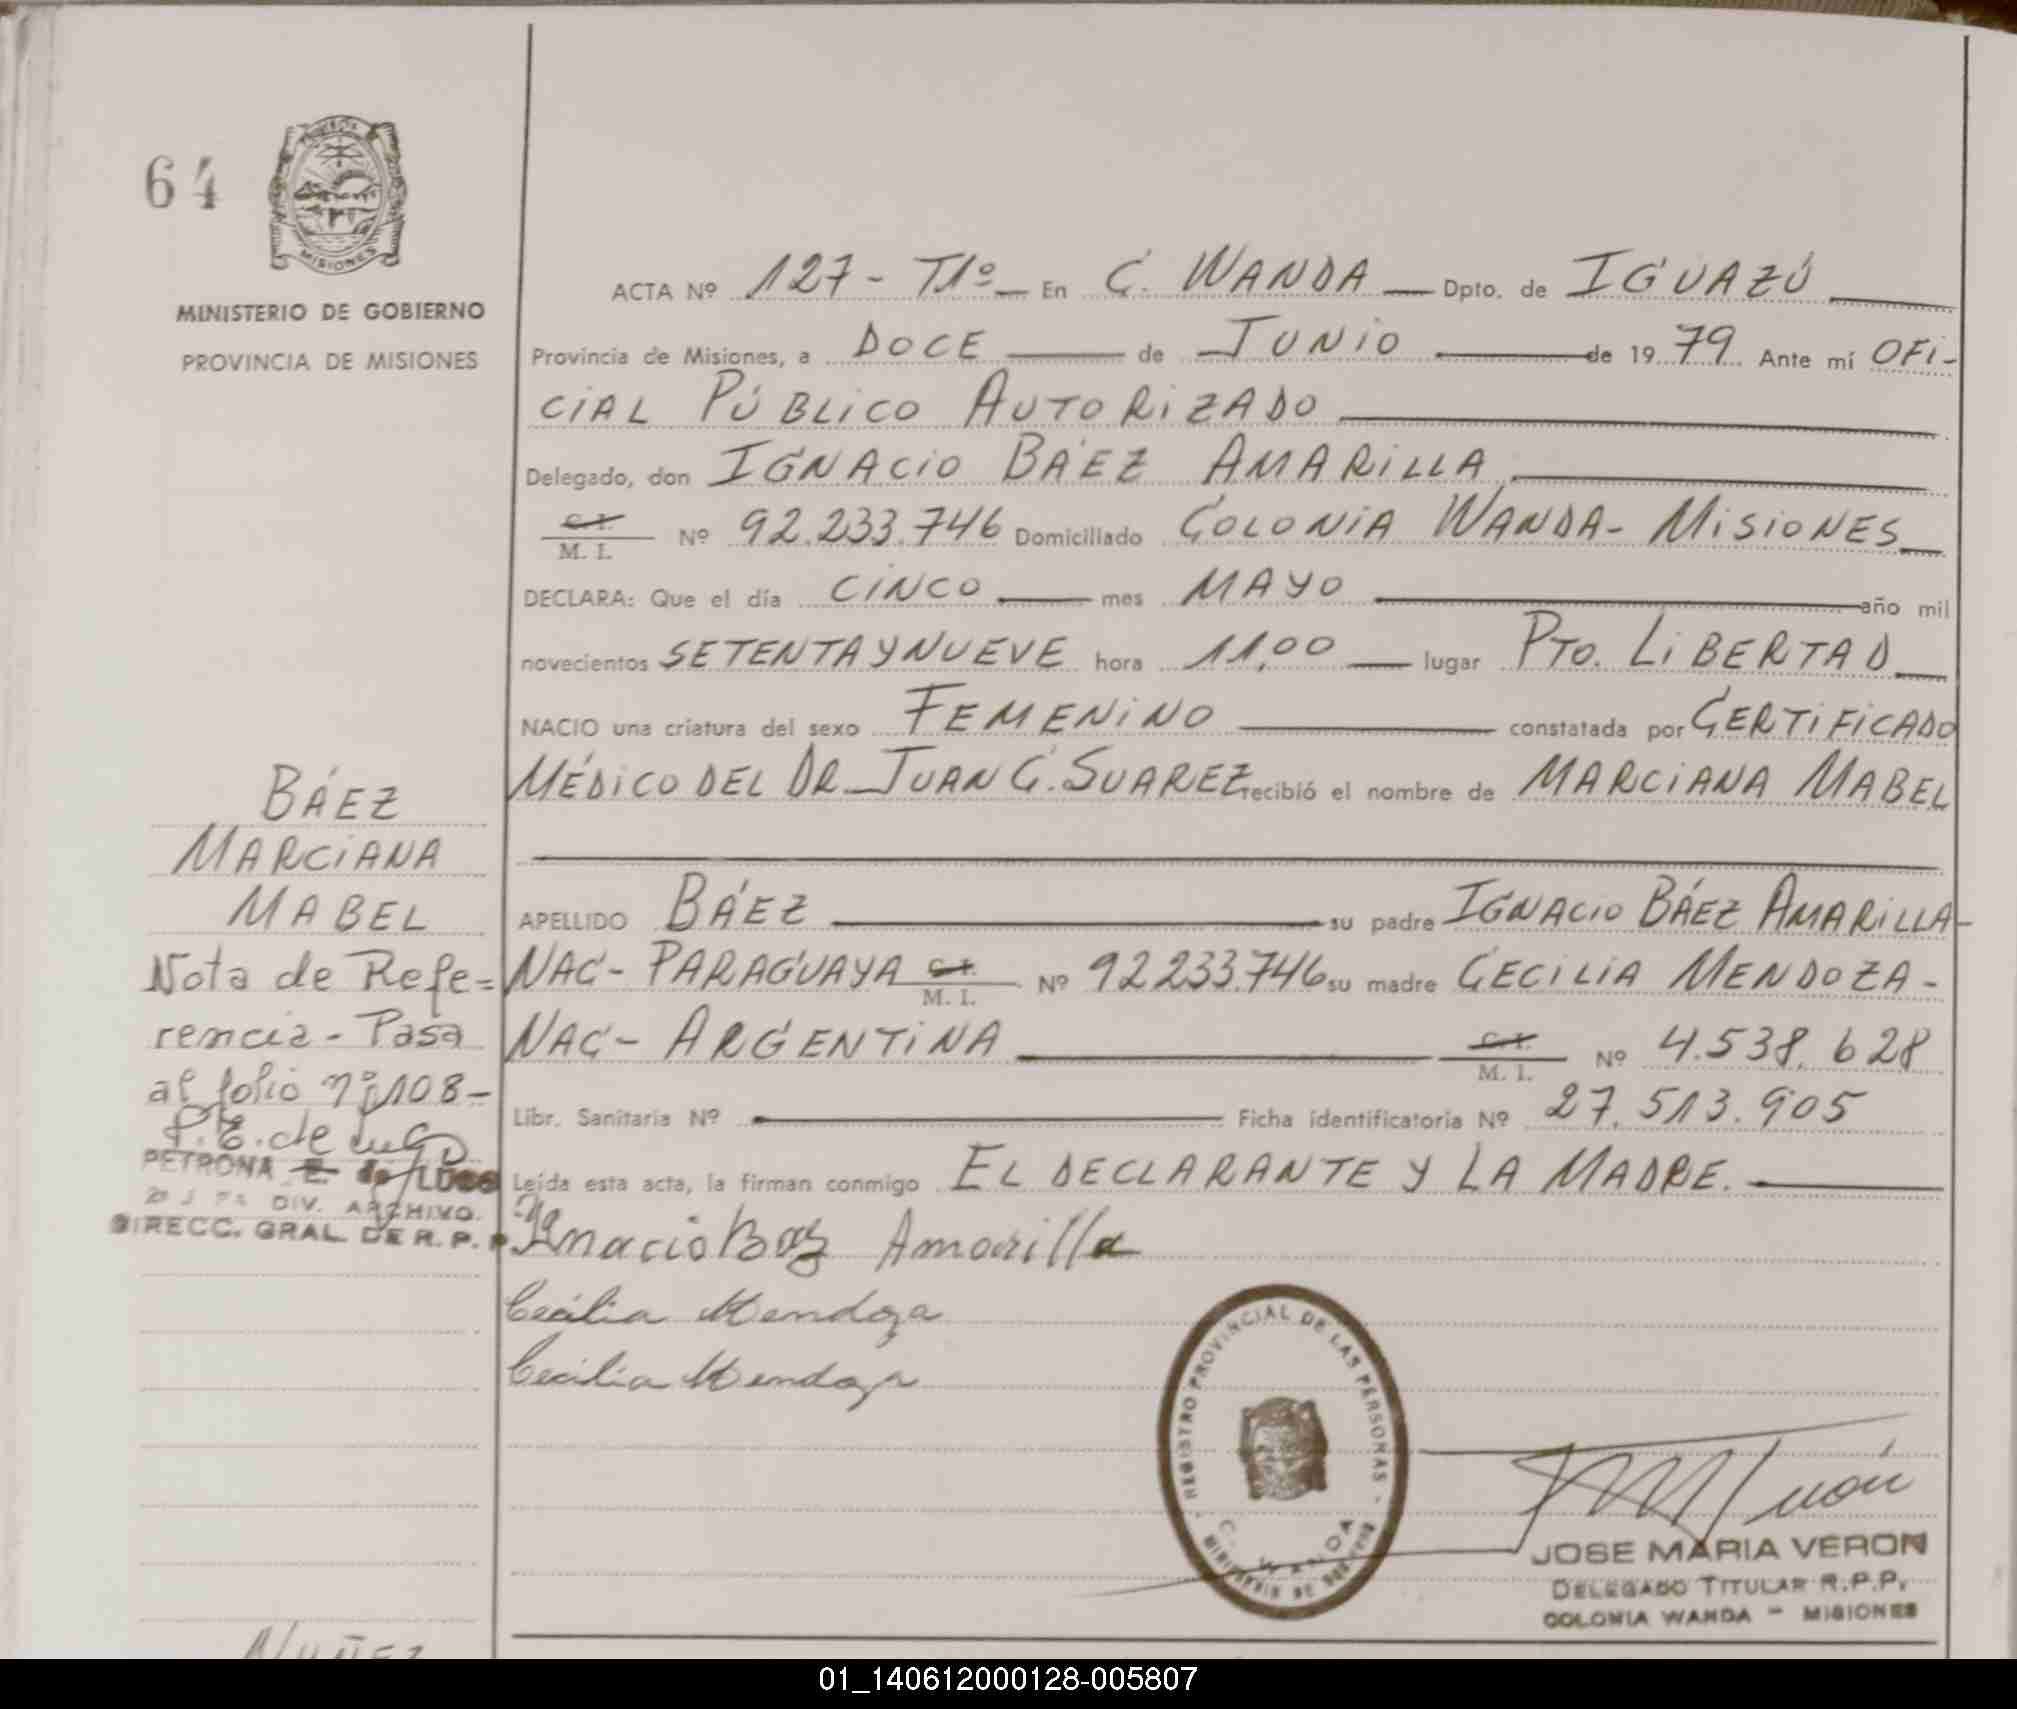 64
MISIONES
MINISTERIO DE GOBIERNO
PROVINCIA DE MISIONES
ACTA Nº 127 - T1º En C. WANDA Dpto. de IGUAZÚ
Provincia de Misiones, a DOCE de JUNIO de 1979 Ante mí OFI-
CIAL PÚBLICO AUTORIZADO
Delegado, don IGNACIO BÁEZ AMARILLA
C. I.
M. I. Nº 92.233.746 Domiciliado COLONIA WANDA - MISIONES
DECLARA: Que el día CINCO mes MAYO año mil
novecientos SETENTA Y NUEVE hora 11,00 lugar PTO. LIBERTAD
NACIO una criatura del sexo FEMENINO constatada por CERTIFICADO
MÉDICO DEL DR. JUAN C. SUAREZ recibió el nombre de MARCIANA MABEL
APELLIDO BÁEZ su padre IGNACIO BÁEZ AMARILLA-
NAC- PARAGUAYA C. I.
M. I. Nº 92.233.746 su madre CECILIA MENDOZA -
NAC- ARGENTINA C. I.
M. I. Nº 4.538.628
Libr. Sanitaria Nº Ficha identificatoria Nº 27.513.905
Leída esta acta, la firman conmigo EL DECLARANTE Y LA MADRE.
BÁEZ
MARCIANA
MABEL
Nota de Refe=
rencia - Pasa
al folio nº 108-
P. E. de Lugo
PETRONA E. de LUGO
DIV. ARCHIVO
DIRECC. GRAL. DE R. P. P.
Ignacio Baez Amarilla
Cecilia Mendoza
Cecilia Mendoza
REGISTRO PROVINCIAL DE LAS PERSONAS -
C. WANDA
MINISTERIO DE GOBIERNO
JOSE MARIA VERON
DELEGADO TITULAR R.P.P.
COLONIA WANDA - MISIONES
NUÑEZ
01_140612000128-005807